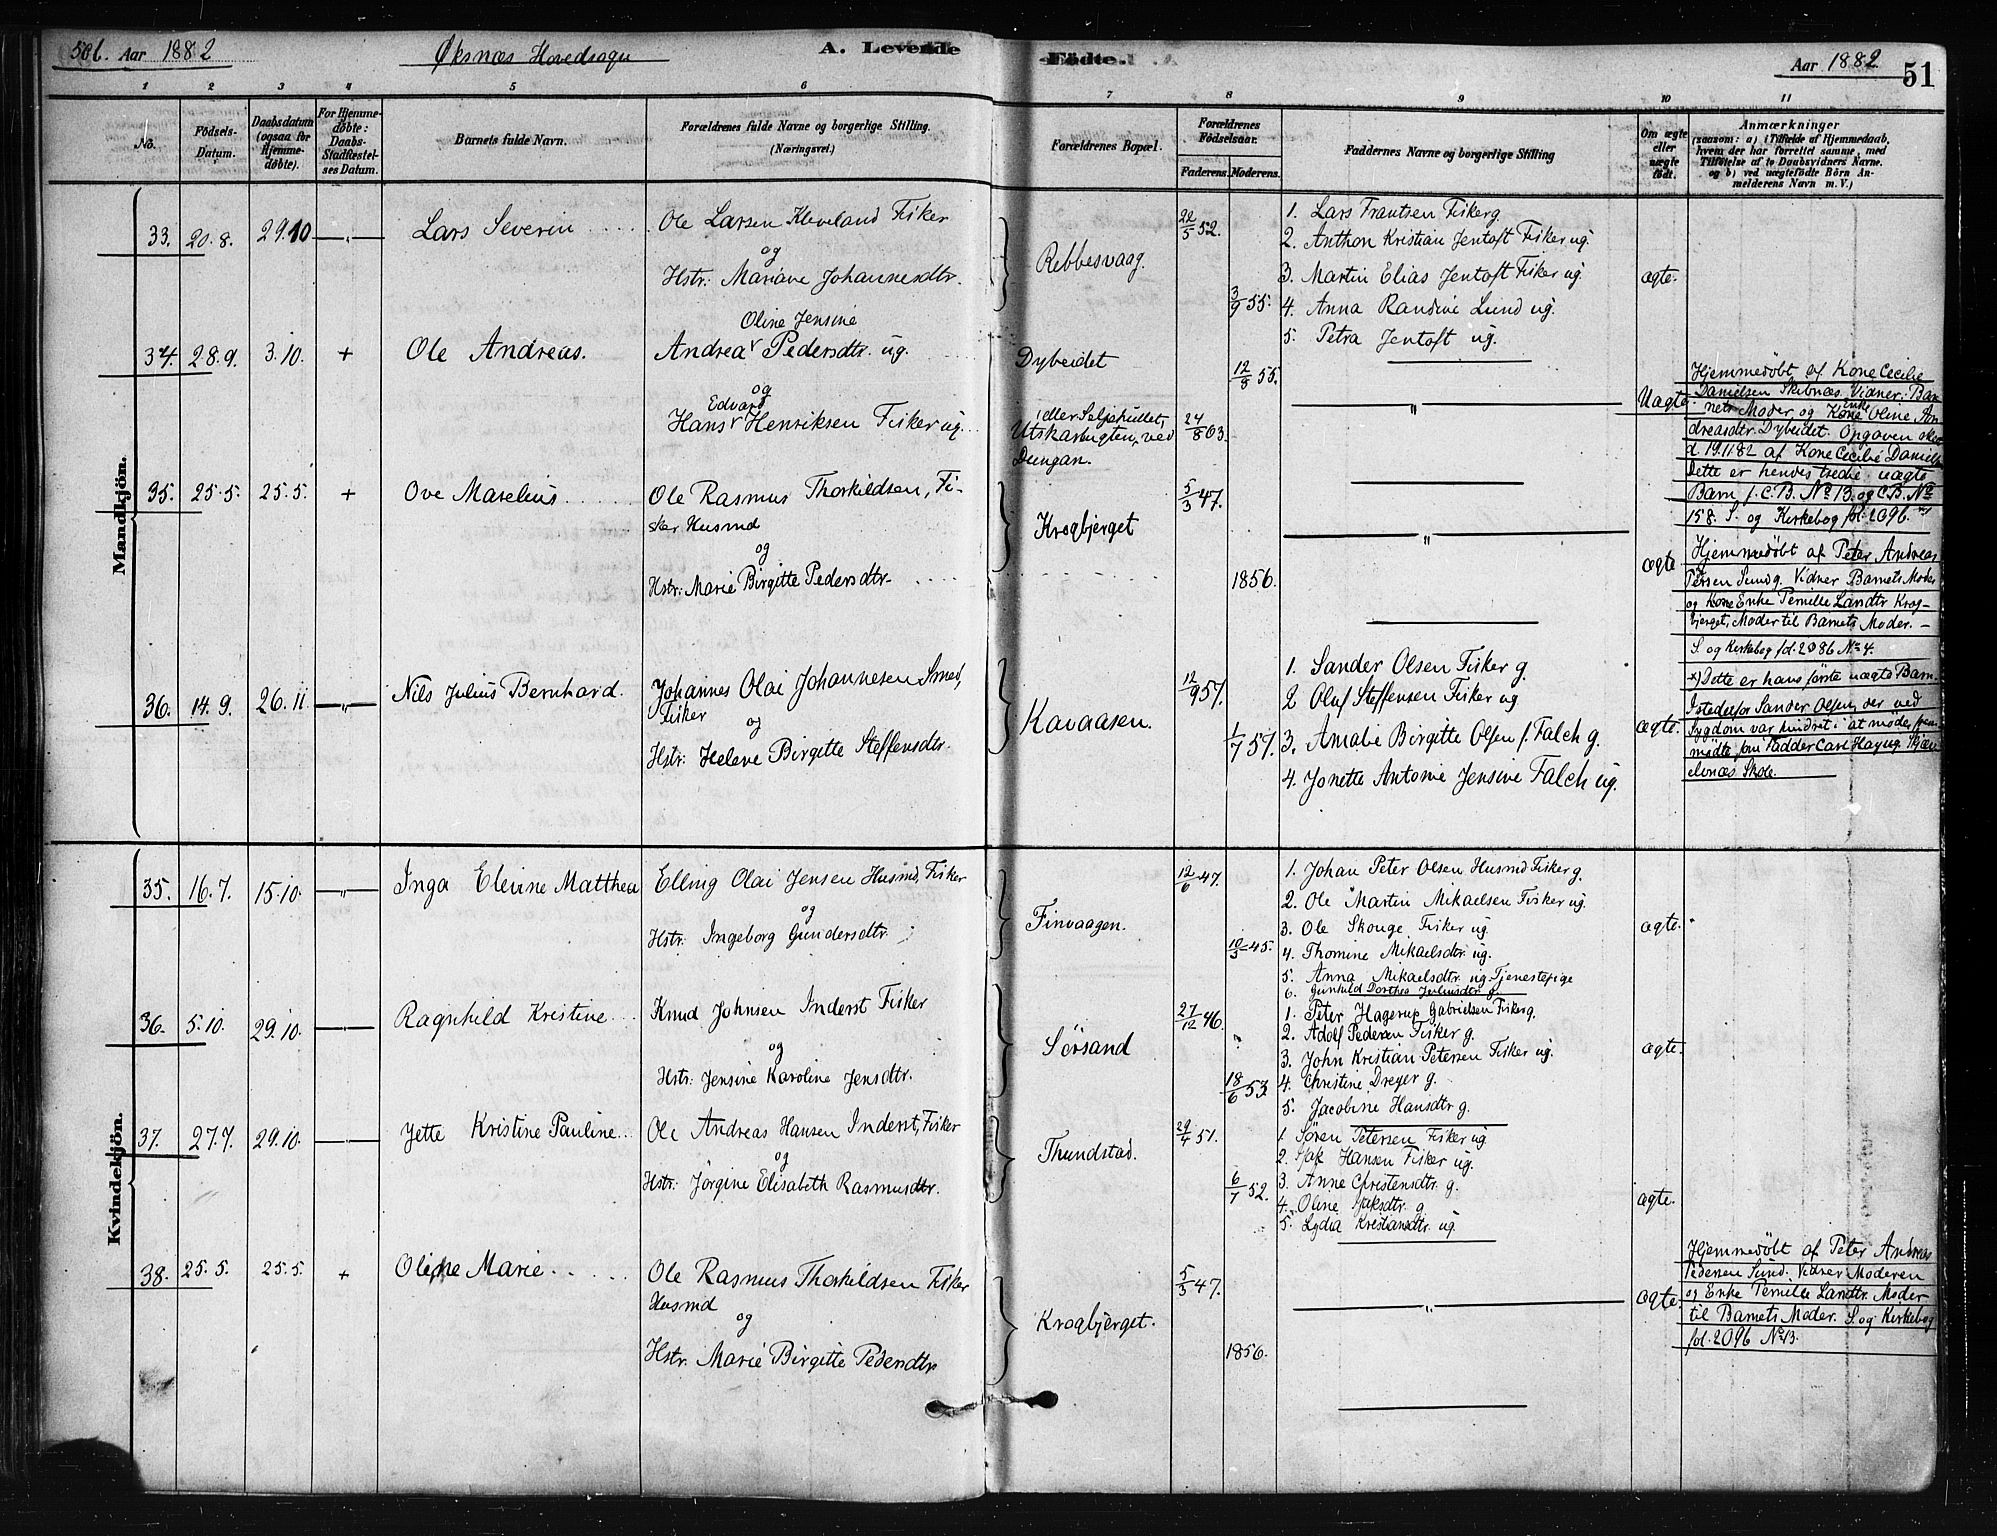 50b. Aar 1882
Øksnæs Hovedsogn
A. Levende
Födte.
Aar 1882
51
1 2 3 4 5 6 7 8 9 10 11
No.
Födsels-Datum.
Daabsdatum (ogsaa for Hjemmedöbte).
For Hjemmedöbte: Daabs-Stadfæstelses Datum.
Barnets fulde Navn.
Forældrenes fulde Navne og borgerlige Stilling.
(Næringsvei.)
Forældrenes Bopæl.
Forældrenes Födselsaar.
Faderens. Moderens.
Faddernes Navne og borgerlige Stilling
Om ægte eller uægte födt.
Anmærkninger
(saasom: a) i Tilfælde af Hjemmedaab,
hvem der har forrettet samme, med
Tilföielse af to Daabsvidners Navne.
og b) ved uægtefödte Börn An-
melderens Navn m. V.)
Mandkjön.
33. 20.8. 29.10 Lars Severin
Ole Larsen Kleveland Fisker
og
Hstr: Mariane Johannesdtr.
Rebbesvaag.
22/5 52.
3/9 55.
1. Lars Frantsen Fisker g
2. Anthon Kristian Jentoft Fisker ug.
3. Martin Elias Jentoft Fisker ug.
4. Anna Randine Lund ug.
5. Petra Jentoft ug.
ægte.
34. 28.9. 3.10. + Ole Andreas.
Oline Jensine
Andrea Pedersdtr. ug.
og
Edvard
Hans Henriksen Fisker ug.
Dybeidet
eller Seljehullet,
Utskarbugten, ved
Dungan.
12/8 55.
24/8 63.
Uægte.
Hjemmedøbt af Kone Cecilie
Danielsen Skibnæs. Vidner: Bar-
nets Moder og Enke Kone Oline An-
dreasdtr. Dybeidet. Opgaven sker
d. 19.11.82 af Kone Cecilie Daniels
Dette er hendes tredie uægte
Barn f. C.B. No 13. og C.B. No
158. S. og Kirkebog fol. 2096. *)
35. 25.5. 25.5. + Ove Maselius
Ole Rasmus Thorkildsen, Fi-
sker Husmd
og
Hstr: Marie Birgitte Pedersdtr.
Krogbjerget
5/3 47.
1856.
ægte
Hjemmedøbt af Peter Andreas
Persen Sund g. Vidner Barnets Moder
og Kone Enke Pernille Landtr Krog-
bjerget, Moder til Barnets Moder. –
S. og Kirkebog fol. 2086 No 4.
*) Dette er hans første uægte Barn.
36. 14.9. 26.11. Nils Julius Bernhard.
Johannes Olai Johannesen Smed,
Fisker
og
Hstr: Helene Birgitte Steffensdtr.
Kavaasen.
12/9 57.
1/7 57.
1. Sander Olsen Fisker g.
2 Oluf Steffensen Fisker ug
3. Amalie Birgitte Olsen f. Falch g.
4. Jonette Antonie Jensine Falch ug.
ægte.
Istedetfor Sander Olsen, der ved
Sygdom var hindret i at møde, frem
mødte som Fadder Carl Haug Skjæ
elvnæs Skole.
Kvindekjön.
35. 16.7. 15.10. Inga Elenne Matthea
Elling Olai Jensen Husmd, Fisker
og
Hstr: Ingeborg Gundersdtr.
Finvaagen.
12/6 47.
10/3 45.
1. Johan Peter Olsen Husmd Fisker g.
2. Ole Martin Mikaelsen Fisker ug.
3. Ole Skouge Fisker ug.
4. Thomine Mikaelsdtr. ug.
5. Anna Mikaelsdtr. ug. Tjenestepige
6. Gunhild Dorthea Juliusdtr g.
ægte.
36. 5.10. 29.10. Ragnhild Kristine
Knud Johnsen Inderst Fisker
og
Hstr: Jensine Karoline Jensdtr.
Sørsand
27/12 46.
18/6 53
1. Peter Hagerup Gabrielsen Fisker g.
2. Adolf Pedersen Fisker g.
3. John Kristian Petersen Fisker ug.
4. Christine Dreyer g.
5. Jacobine Hansdtr g.
ægte.
37. 27.7. 29.10. Jette Kristine Pauline
Ole Andreas Hansen Inderst, Fisker
og
Hstr: Jørgine Elisabeth Rasmusdtr.
Thundstad.
29/4 51.
6/7 52.
1. Søren Petersen Fisker ug
2. Isak Hansen Fisker ug.
3. Anne Christensdtr. g.
4. Oline Isaksdtr. g
5. Lydia Kristiansdtr. ug.
ægte.
38. 25.5. 25.5. + Oline Marie
Ole Rasmus Thorkildsen Fisker
Husmd
og
Hstr. Marie Birgitte Pedersdtr
Krogbjerget.
5/3 47.
1856.
ægte.
Hjemmedøbt af Peter Andreas
Pedersen Sund. Vidner Moderen
og Enke Pernille Landtr. Moder
til Barnets Moder. S. og Kirkebog
fol. 2096 No 13.